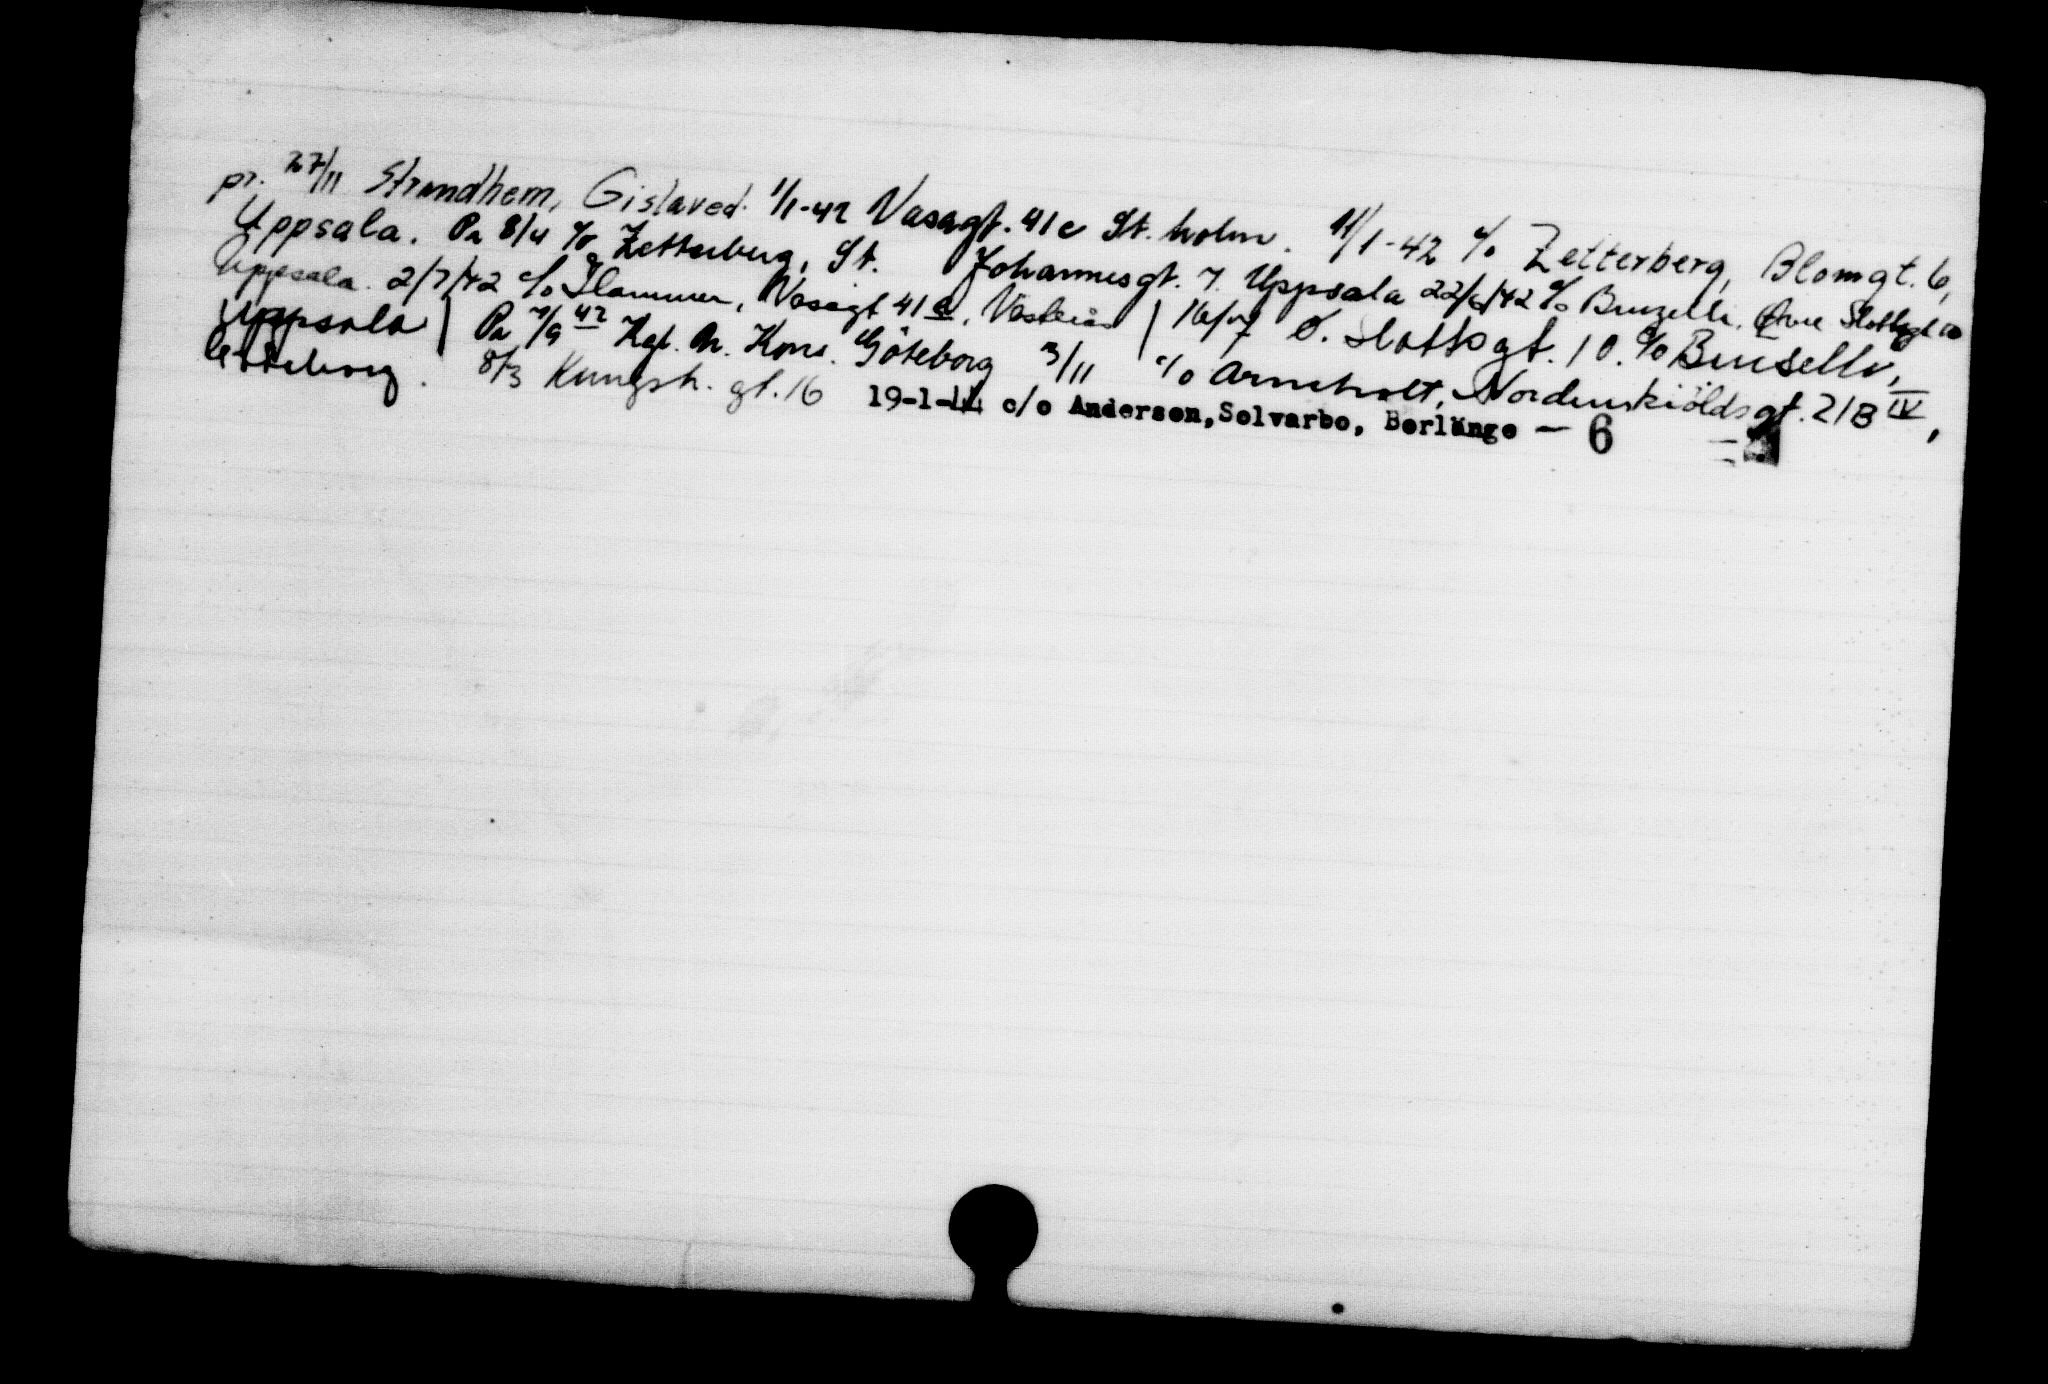 pr. 27/11 Strandhem, Gislaved. 1/1-42 Vasagt. 41c St.holm. 11/1-42 c/o Zetterberg, Blomgt. 6,
Uppsala. Pr 8/4 c/o Zetterberg, St. Johannesgt. 7. Uppsala 22/6/42 c/o Buzelli, Övre Slottsgt 10
Uppsala. 2/7/42 c/o Hammer, Vasagt 41 c, Västerås | 16/7 Ö. Slottsgt. 10. c/o Buselli,
Uppsala | Pr 7/9 42 Kgl. N. Kons. Göteborg 3/11 c/o Arnholt, Nordenskiöldsgt. 21B IV,
Göteborg. 8/3 Kungsh. gt. 16 19-1-44 c/o Andersen, Solvarbo, Borlänge — 6